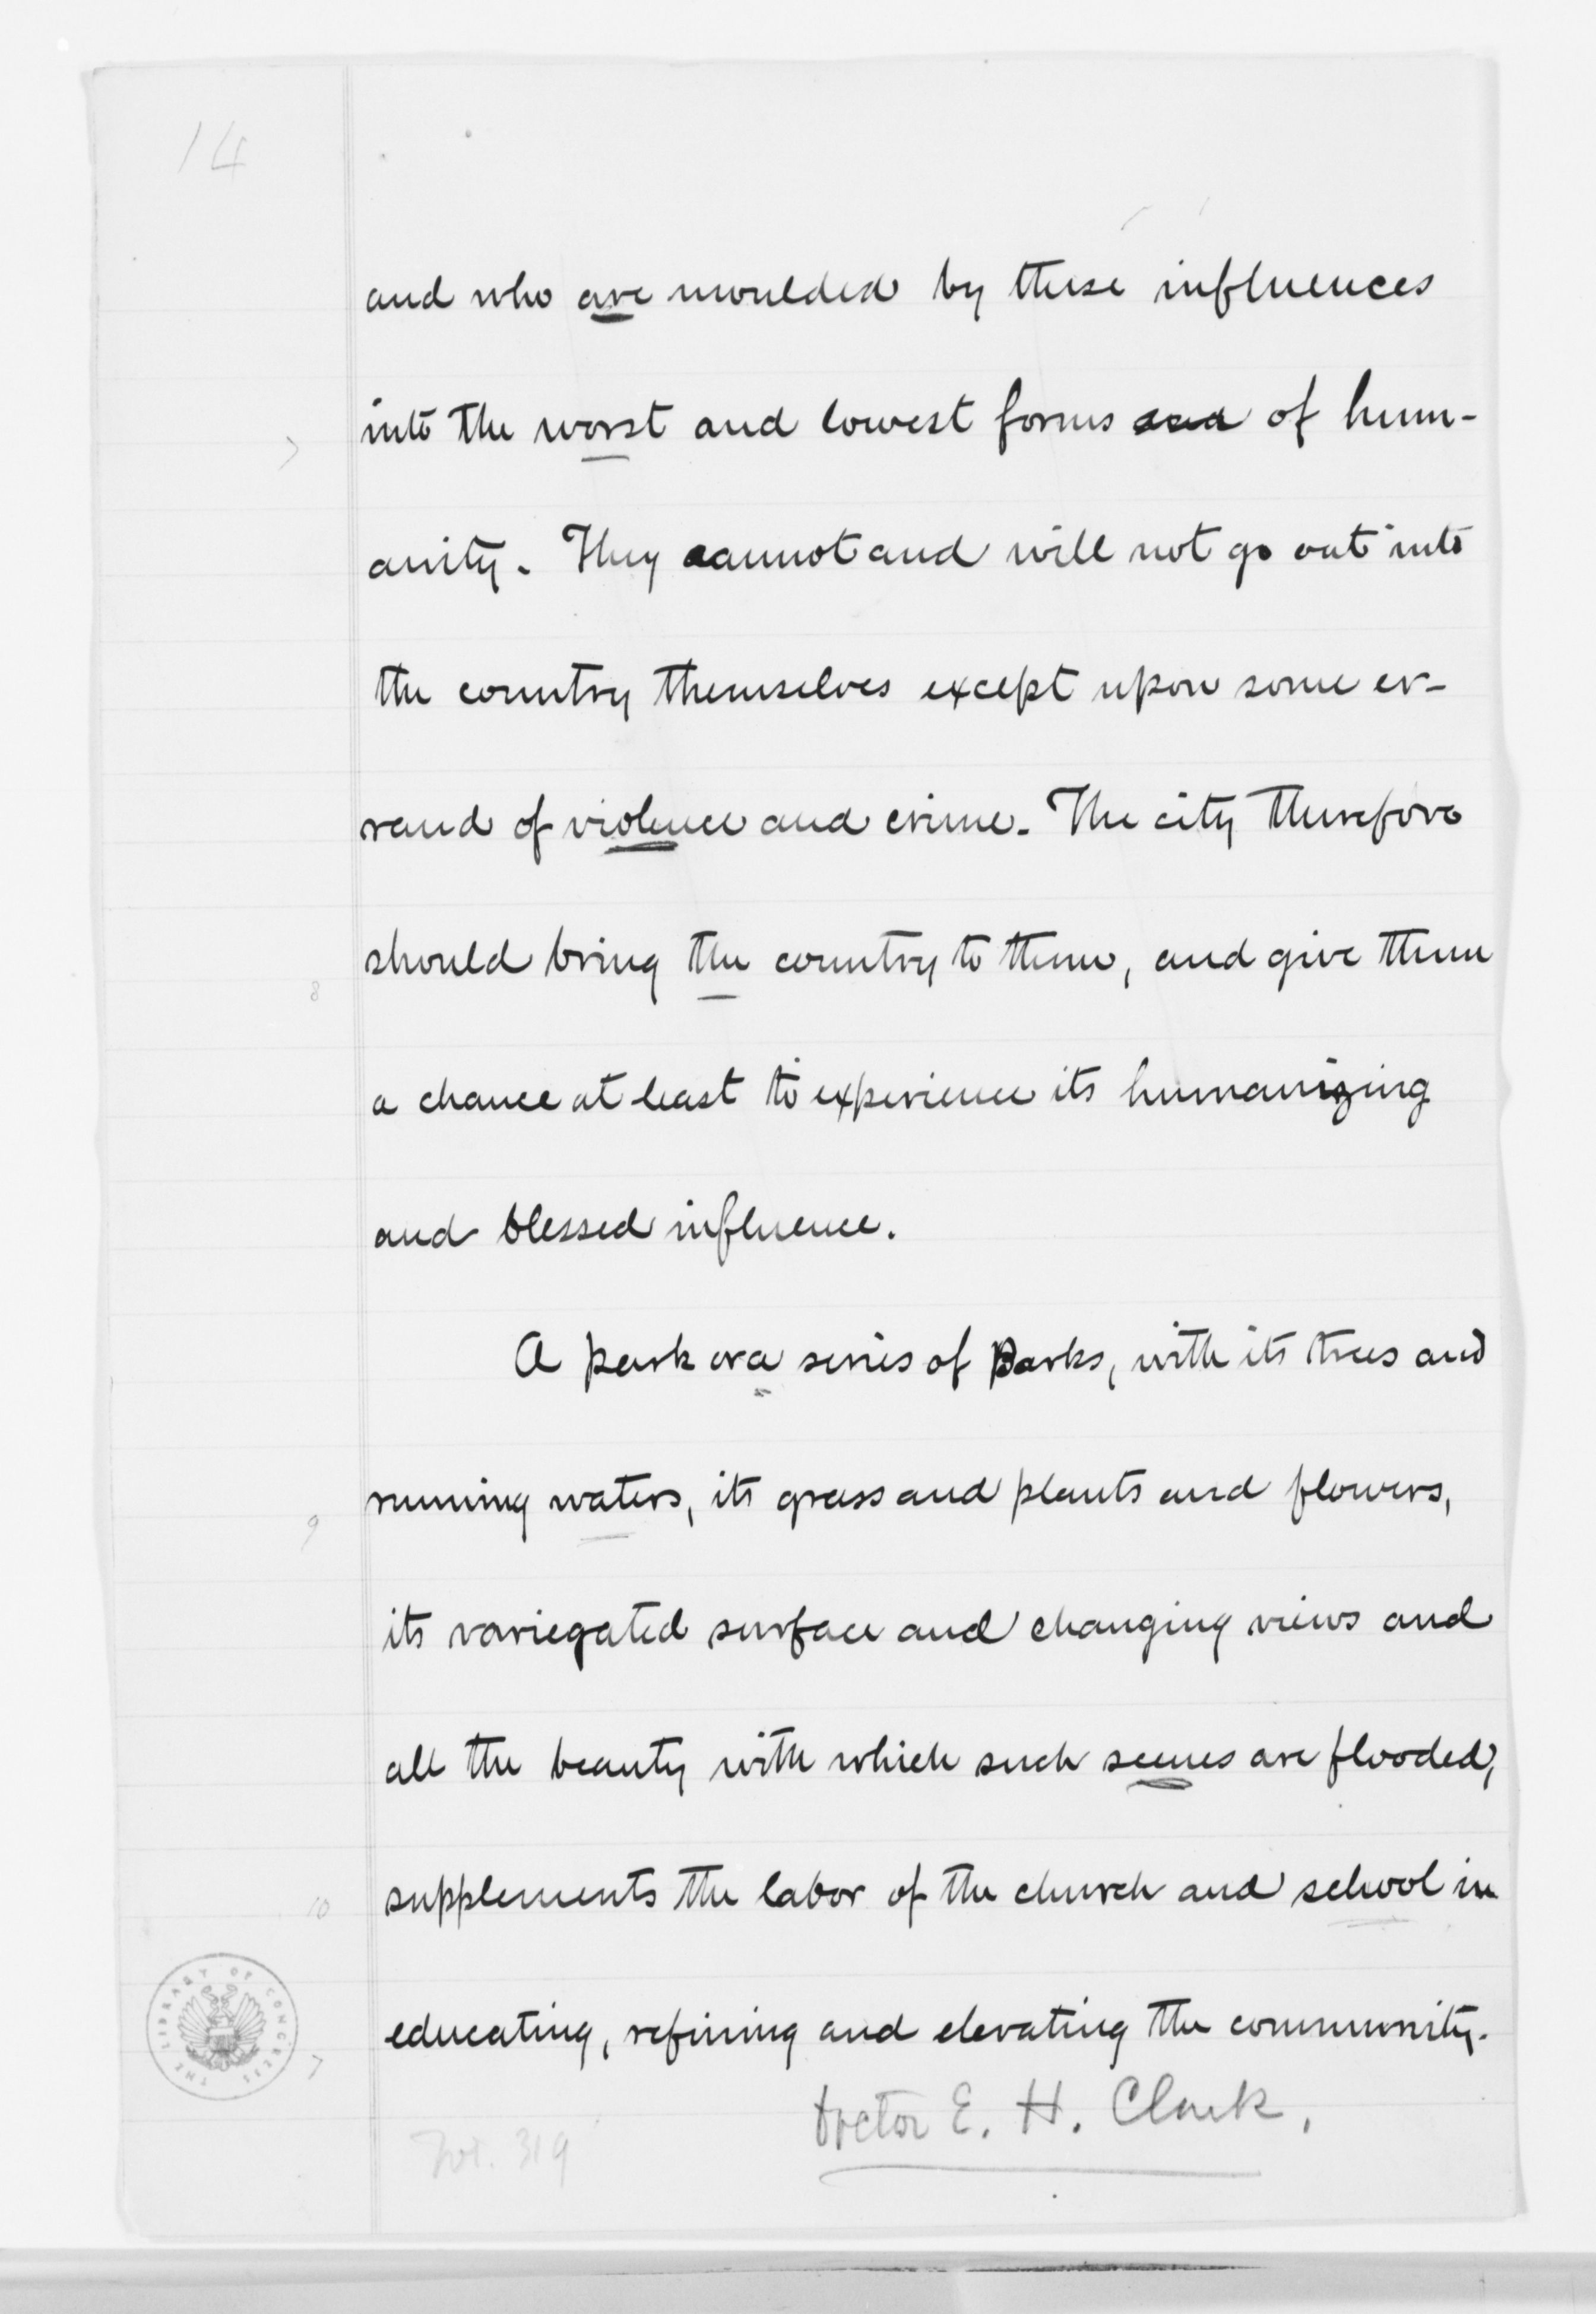 14
and who are moulded by these influences
into the worst and lowest forms and of hum-
anity. They cannot and will not go out into
the country themselves except upon some er-
rand of violence and crime. The city therefore
should bring the country to them, and give them
8
a chance at least to experience its humanizing
and blessed influence.
A park or a series of Parks, with its trees and
running waters, its grass and plants and flowers,
9
its variegated surface and changing views and
all the beauty with which such scenes are flooded,
supplements the labor of the church and school in
10
educating, refining and elevating the community.
THE LIBRARY OF CONGRESS
7
Doctor E. H. Clark.
319